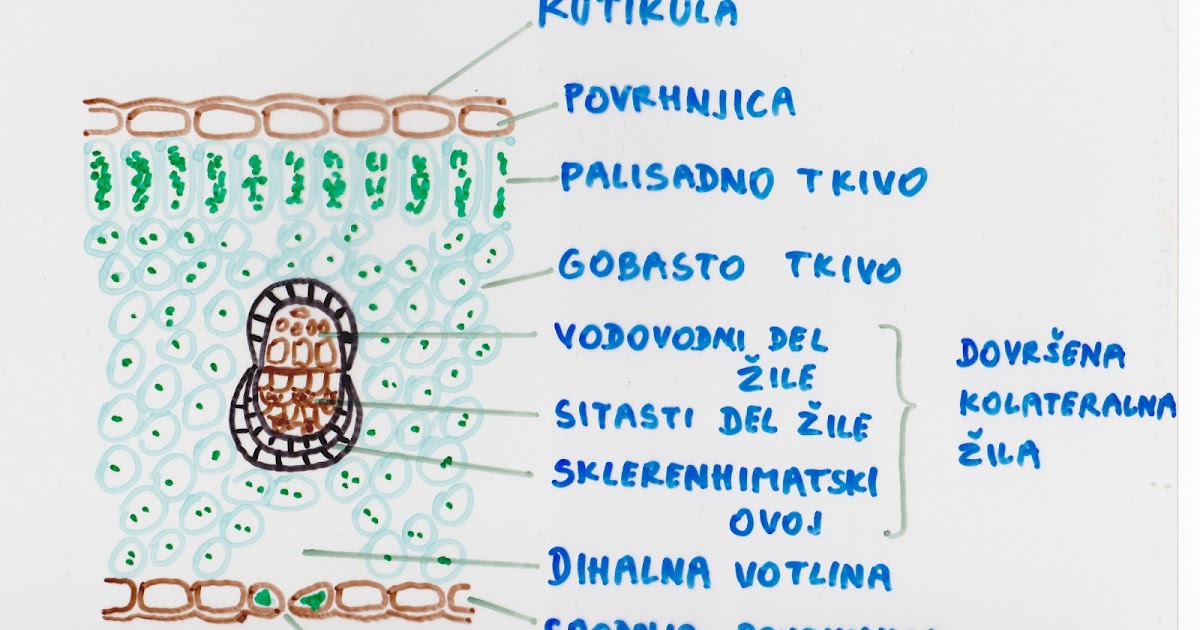 KUTIKULA
POVRHNJICA
PALISADNO TKIVO
GOBASTO TKIVO
VODOVODNI DEL
ŽILE
SITASTI DEL ŽILE
SKLERENHIMATSKI
OVOJ
DOVRŠENA
KOLATERALNA
ŽILA
DIHALNA VOTLINA